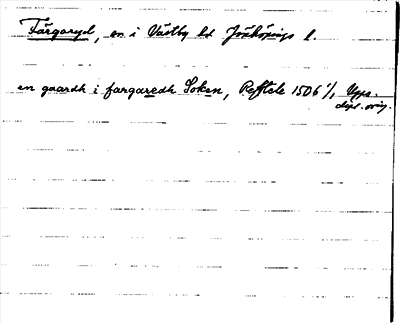 Färgaryd, sn i Västbo hd Jönköpings l.
en gaardh i fargaredh Soken, Refftele 1506 1/1 Upps.
dipl. orig.